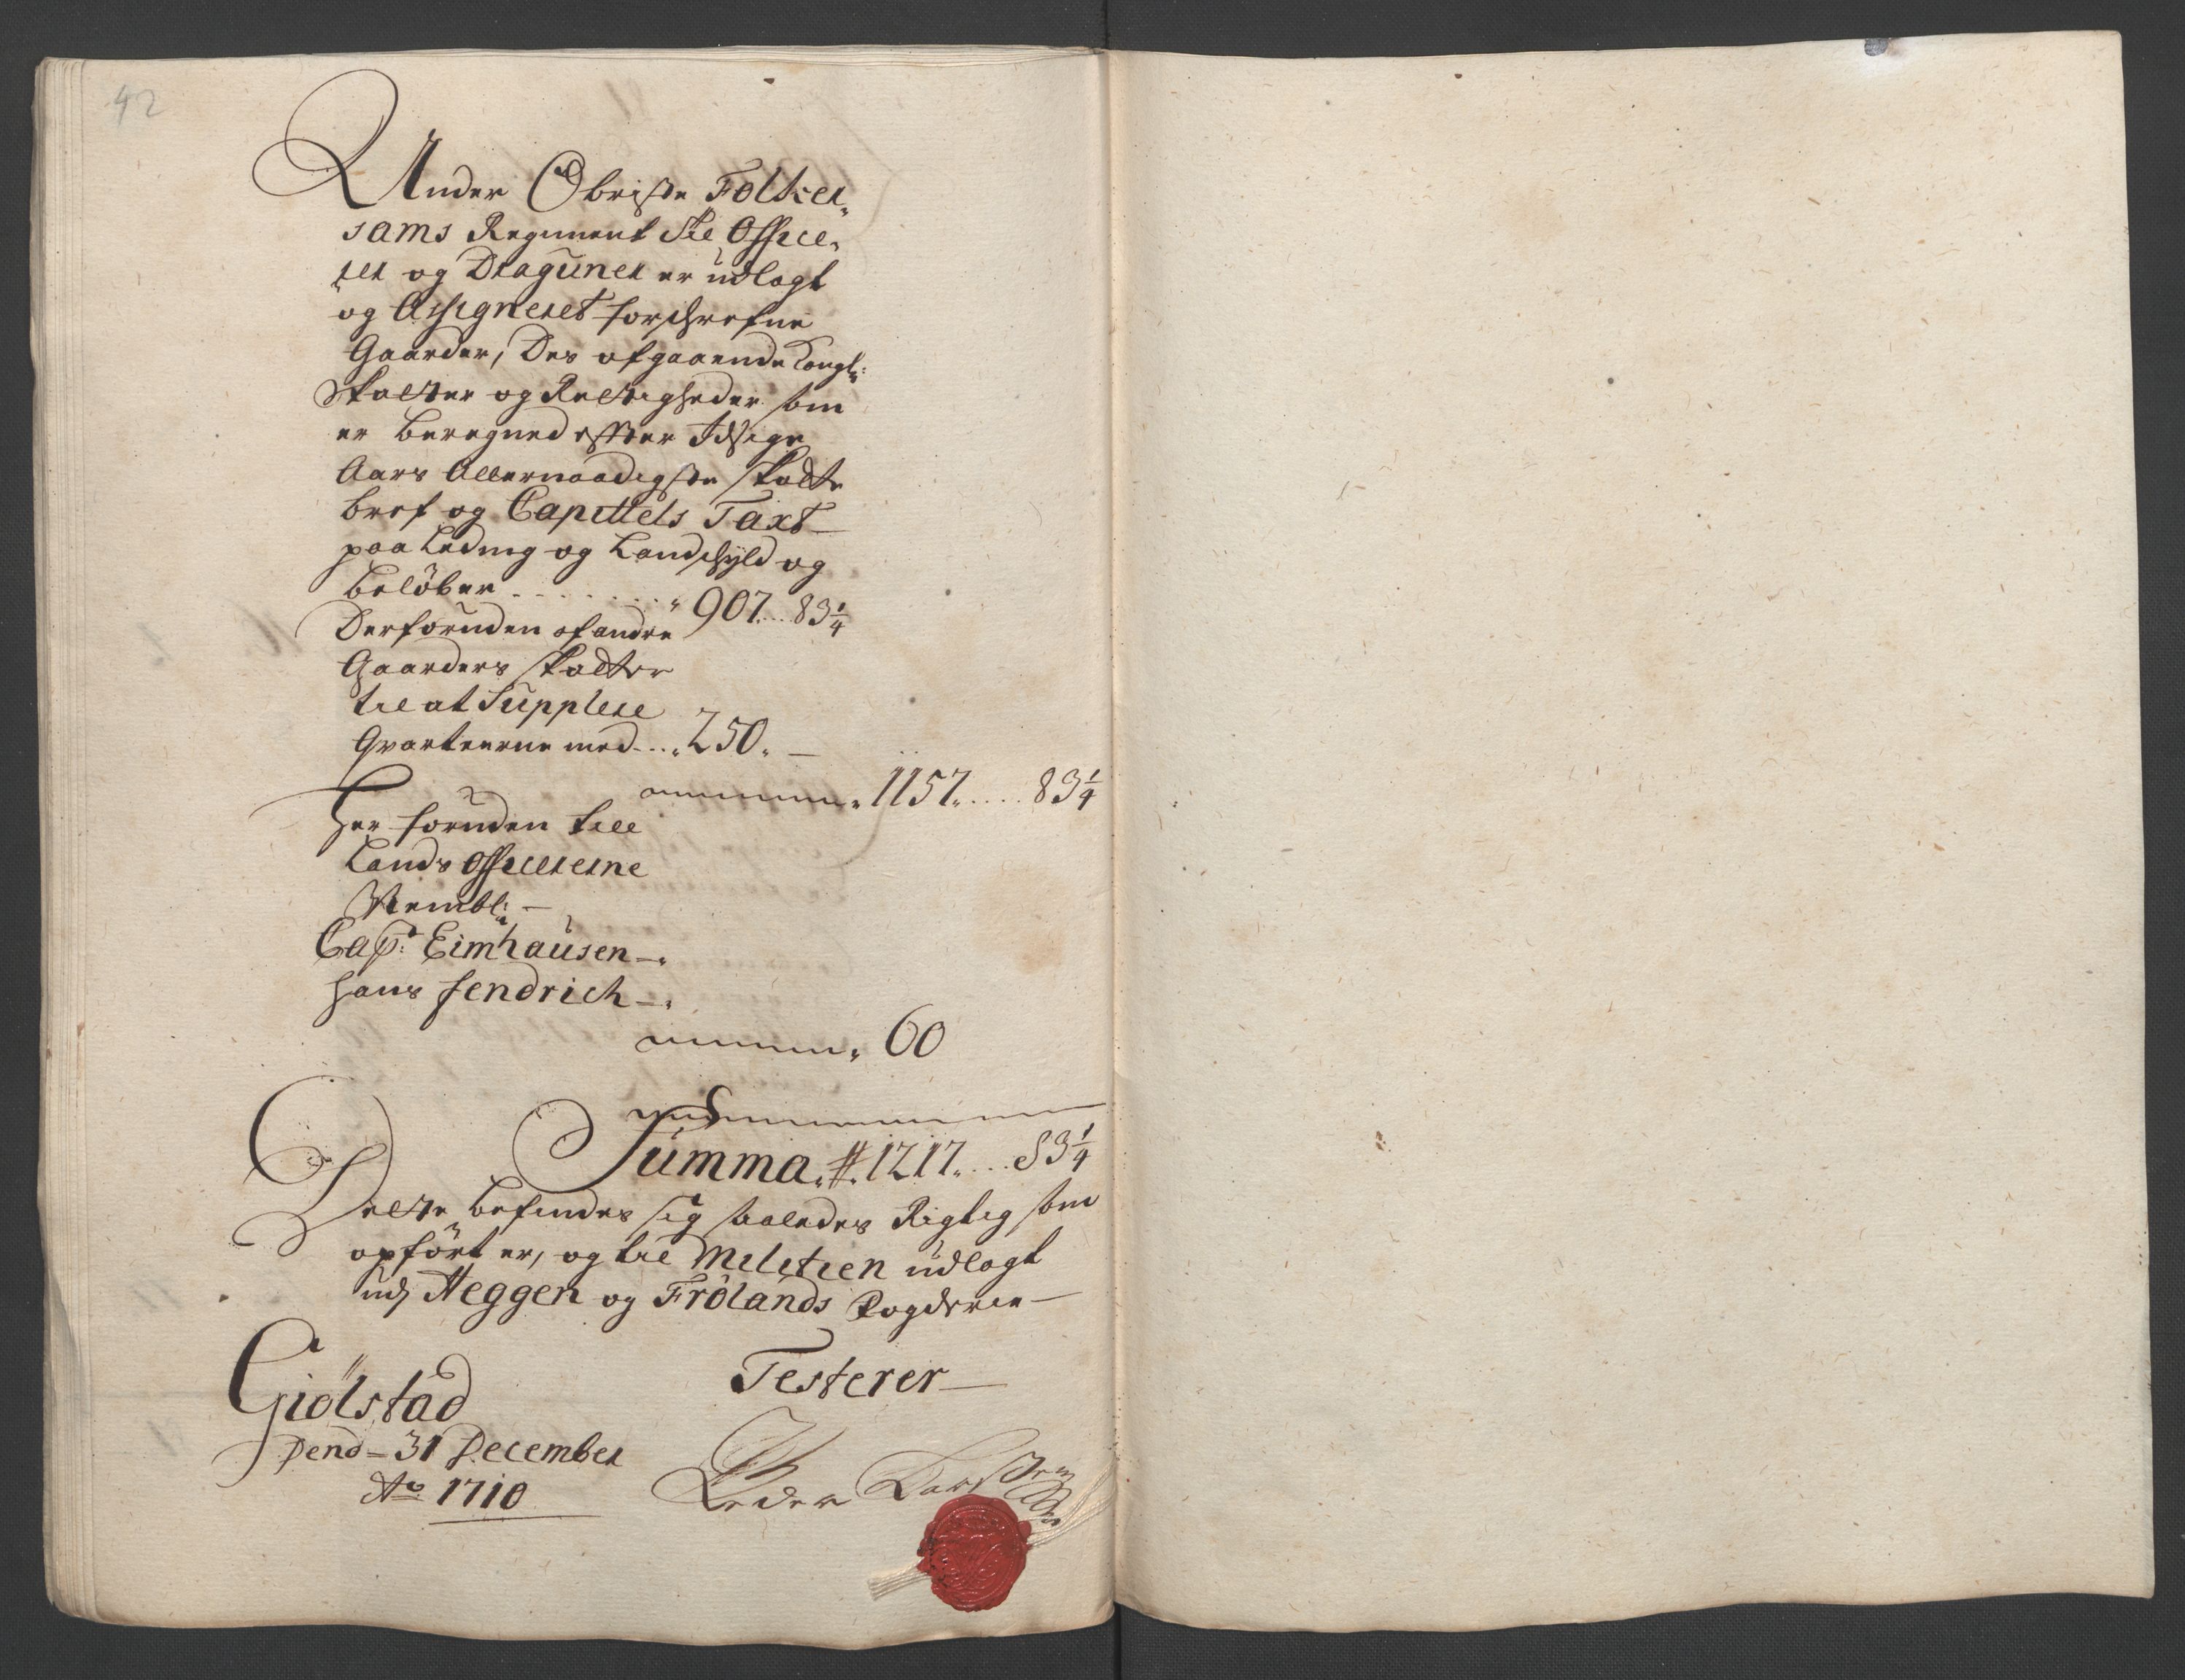 42
Under Obriste Folker,
sams Regiment Ste Office,
rer og Dragüner er üdlagt
og Assigneret forschrefne
Gaarder, Des afgaaende Kongl:
Skatter og Rettigheder som
er beregned effter Idsige
Aars Allernaadigste Skatte
bref og Capittels Taxt
paa Leding og Landschyld og
beløber . . . . . . . 907 .. 83 1/4
Derforuden af andre
Gaarders Skatter
til at Supplere
Qvarteerne med ... 250. —
1157 ..... 83 1/4
Her foruden till
Lands Officererne
Nembl: —
Cap: Eimhaüsen —
Hans Fendrich —
60
Summa # 1217 .... 83 1/4
Dette befindes sig saaledes Rigtig som
opført er, og til Militien üdlagt
üdj Heggen og Frølands Fogderie —
Giølstad
Dend — 31 December
Ao 1710
Testerer —
Peder